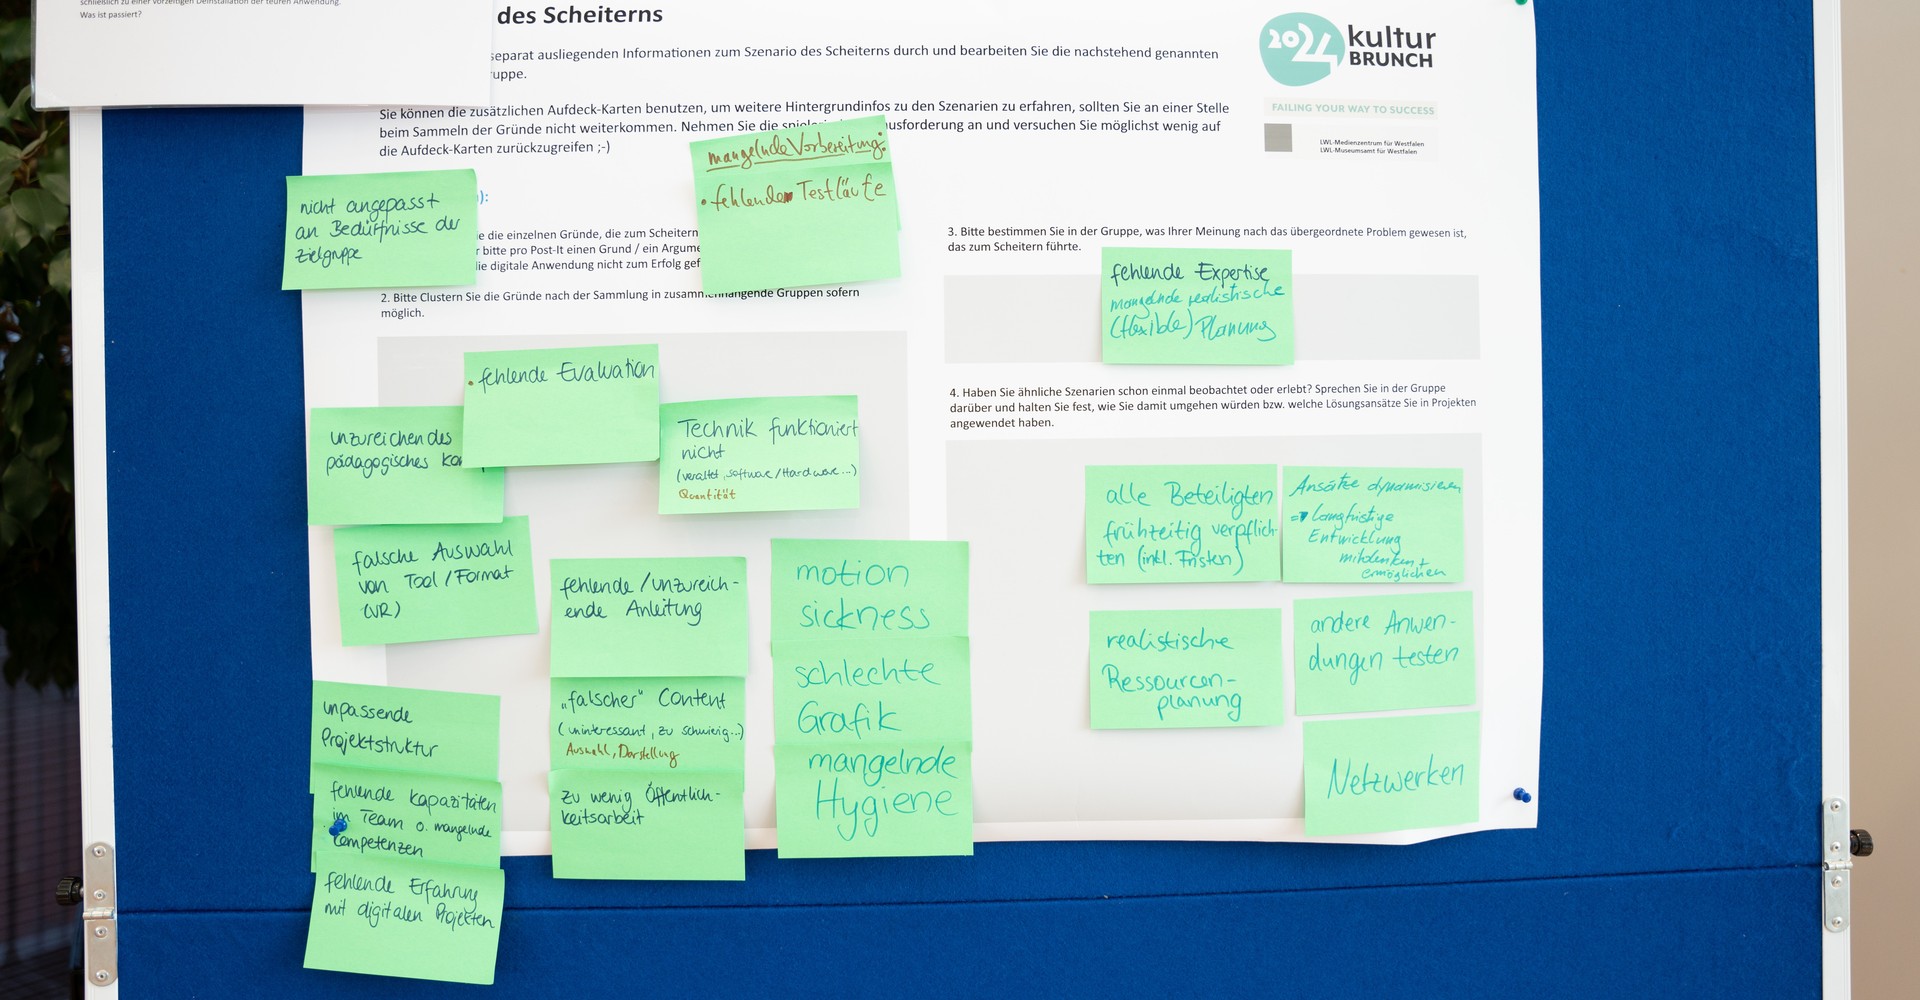 schließlich zu einer vorzeitigen Deinstallation der teuren Anwendung.
Was ist passiert?
des Scheiterns
separat ausliegenden Informationen zum Szenario des Scheiterns durch und bearbeiten Sie die nachstehend genannten
Sie können die zusätzlichen Aufdeck-Karten benutzen, um weitere Hintergrundinfos zu den Szenarien zu erfahren, sollten Sie an einer Stelle
beim Sammeln der Gründe nicht weiterkommen. Nehmen Sie die
die Aufdeck-Karten zurückzugreifen ;-)
an und versuchen Sie möglichst wenig auf
2024
kultur
BRUNCH
FAILING YOUR WAY TO SUCCESS
LWL-Medienzentrum für Westfalen
LWL-Museumsamt für Westfalen
mangelnde Vorbereitung:
• fehlende Testläufe
nicht angepasst
an Bedürfnisse der
Zielgruppe
die einzelnen Gründe, die zum Scheitern
bitte pro Post-It einen Grund / ein
die digitale Anwendung nicht zum Erfolg
2. Bitte Clustern Sie die Gründe nach der Sammlung in zusammenhängende Gruppen sofern
möglich.
• fehlende Evaluation
unzureichendes
pädagogisches
Technik funktioniert
nicht
(veraltet, Software/Hardware...)
Quantität
falsche Auswahl
von Tool/Format
(VR)
fehlende/unzureich-
ende Anleitung
„falscher" Content
(uninteressant, zu schwierig...)
Auswahl, Darstellung
zu wenig Öffentlich-
keitsarbeit
motion
sickness
schlechte
Grafik
mangelnde
Hygiene
unpassende
Projektstruktur
fehlende Kapazitäten
im Team o. mangelnde
Kompetenzen
fehlende Erfahrung
mit digitalen Projekten
3. Bitte bestimmen Sie in der Gruppe, was Ihrer Meinung nach das übergeordnete Problem gewesen ist,
das zum Scheitern führte.
fehlende Expertise
mangelnde realistische
(flexible) Planung
4. Haben Sie ähnliche Szenarien schon einmal beobachtet oder erlebt? Sprechen Sie in der Gruppe
darüber und halten Sie fest, wie Sie damit umgehen würden bzw. welche Lösungsansätze Sie in Projekten
angewendet haben.
alle Beteiligten
frühzeitig verpflich-
ten (inkl. Fristen)
Ansätze dynamisieren
⇒ langfristige
Entwicklung
mitdenken +
ermöglichen
realistische
Ressourcen-
planung
andere Anwen-
dungen testen
Netzwerken